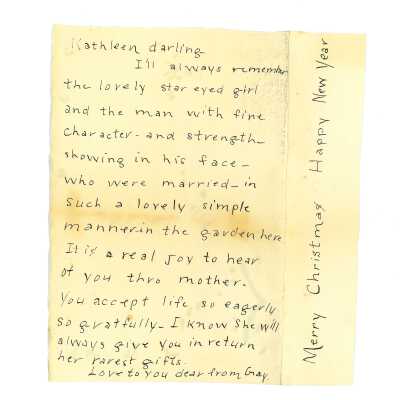 Kathleen darling
I'll always remember
the lovely star eyed girl
and the man with fine
character - and strength -
showing in his face -
who were married - in
such a lovely simple
manner in the garden here
It is a real joy to hear
of you thro mother.
You accept life so eagerly
so gratfully - I know she will
always give you in return
her rarest gifts.
Love to you dear from Gay.
Merry Christmas Happy New Year